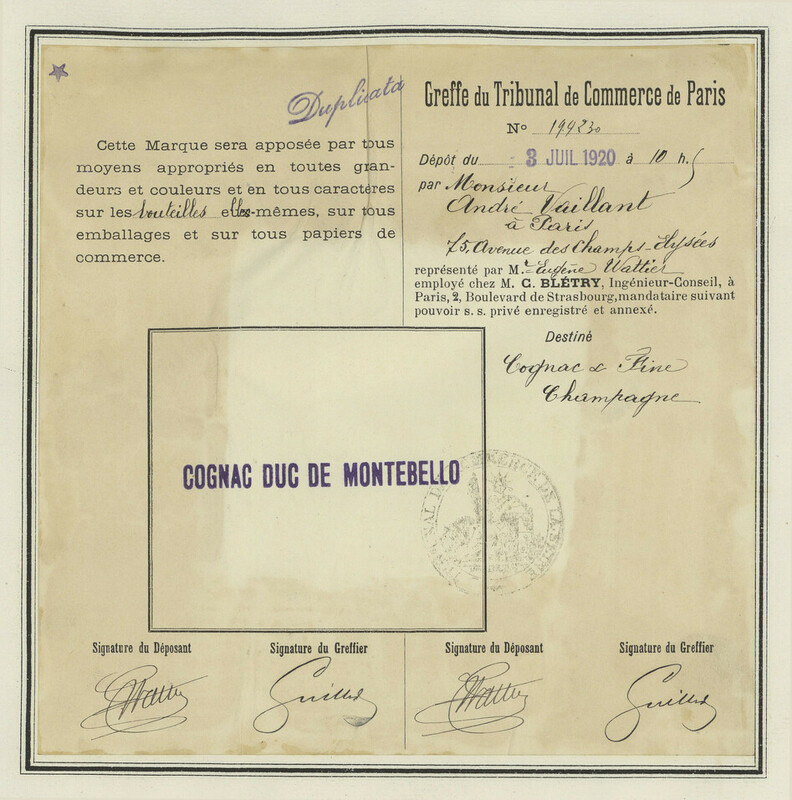 Duplicata
Cette Marque sera apposée par tous
moyens appropriés en toutes gran-
deurs et couleurs et en tous caractères
sur les bouteilles elles-mêmes, sur tous
emballages et sur tous papiers de
commerce.
Greffe du Tribunal de Commerce de Paris
No 194230
Dépôt du 3 JUIL 1920 à 10 h.
par Monsieur
André Vaillant
à Paris
75, Avenue des Champs-Elysées
représenté par M.r Eugène Wattier
employé chez M. C. BLÉTRY, Ingénieur-Conseil, à
Paris, 2, Boulevard de Strasbourg, mandataire suivant
pouvoir s. s. privé enregistré et annexé.
Destiné
Cognac & Fine
Champagne
COGNAC DUC DE MONTEBELLO
TRIBUNAL DE COMMERCE DE LA SEINE
Signature du Déposant
Signature du Greffier
Signature du Déposant
Signature du Greffier